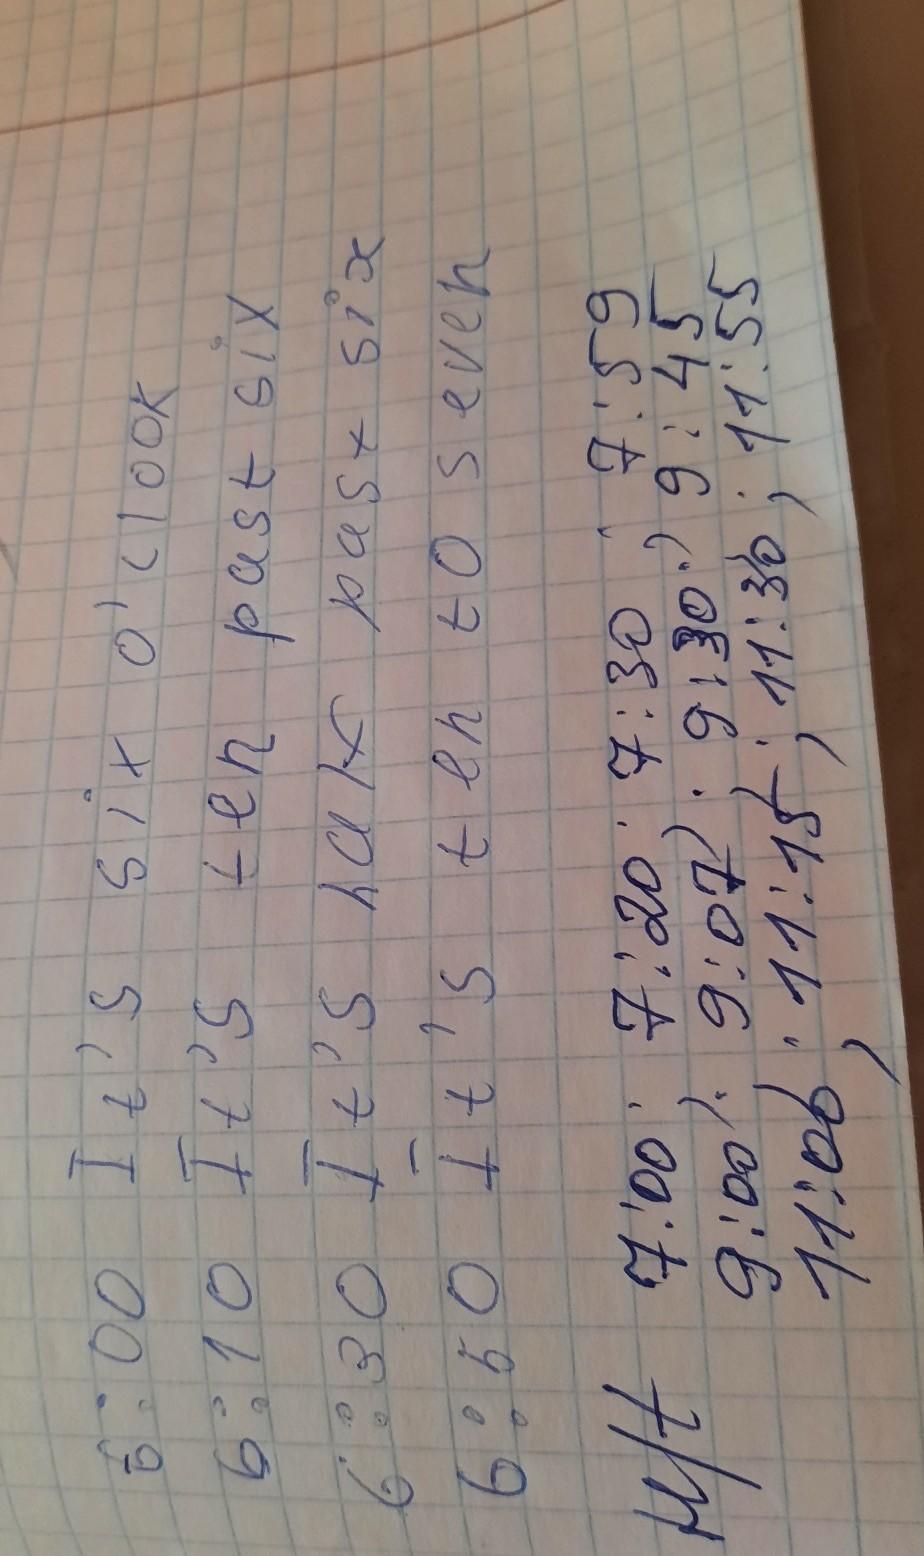 6:00 It's six o'clook
6:10 It's ten past six
6:30 It's half past six
6:50 It's ten to seven
H/t 7:00; 7:20; 7:30; 7:59
9:00; 9:07; 9:30; 9:45
11:00; 11:15; 11:30; 11:55